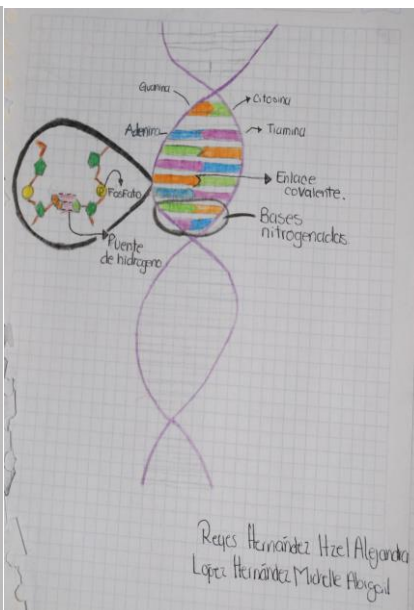 Guanina
Citosina
Adenina
Tiamina
Enlace
covalente.
Fosfato
Bases
nitrogenadas
Puente
de hidrógeno
Reyes Hernández Itzel Alejandra
López Hernández Michelle Abigail